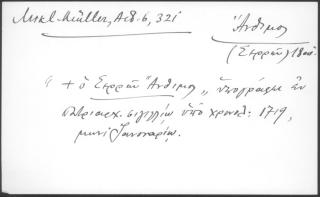 Mikl-Müller, Acta 6, 321
Ἄνθιμος
(Σερρῶν) 18 αἰ.
" + ὁ Σερρῶν Ἄνθιμος „ ὑπογράφει ἐν
πατριαρχ. σιγιλλίῳ ὑπὸ χρονολ. 1719,
μηνὶ Ἰανουαρίῳ.